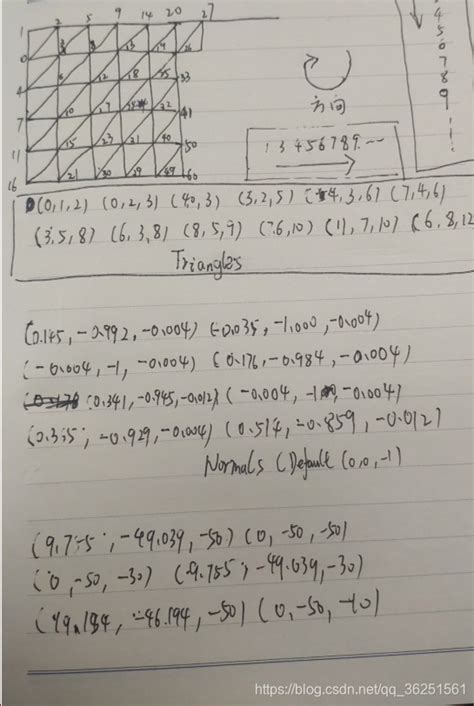 1 2 5 9 14 20 27
4
5
6
7
8
9
0
4
7
11
16
12 18 25 33
10 17 41
15 23 40 50
21 30 60
方向
1 3 4 5 6 7 8 9. ...
(0,1,2) (0,2,3) (4,0,3) (3,2,5) (4,3,6) (7,4,6)
(3,5,8) (6,3,8) (8,5,9) (7,6,10) (11,7,10) (6,8,12
Triangles
(0.145, -0.992, -0.004) (-0.035, -1.000, -0.004)
(-0.004, -1, -0.004) (0.176, -0.984, -0.004)
(0.341, -0.945, -0.012) (-0.004, -1, -0.004)
(0.335, -0.929, -0.004) (0.514, -0.859, -0.012)
Normals (Default (0,0,-1)
(9.755, -49.039, -50) (0, -50, -50)
(0, -50, -30) (9.755, -49.039, -30)
(19.134, -46.194, -50) (0, -50, -10)
https://blog.csdn.net/qq_36251561